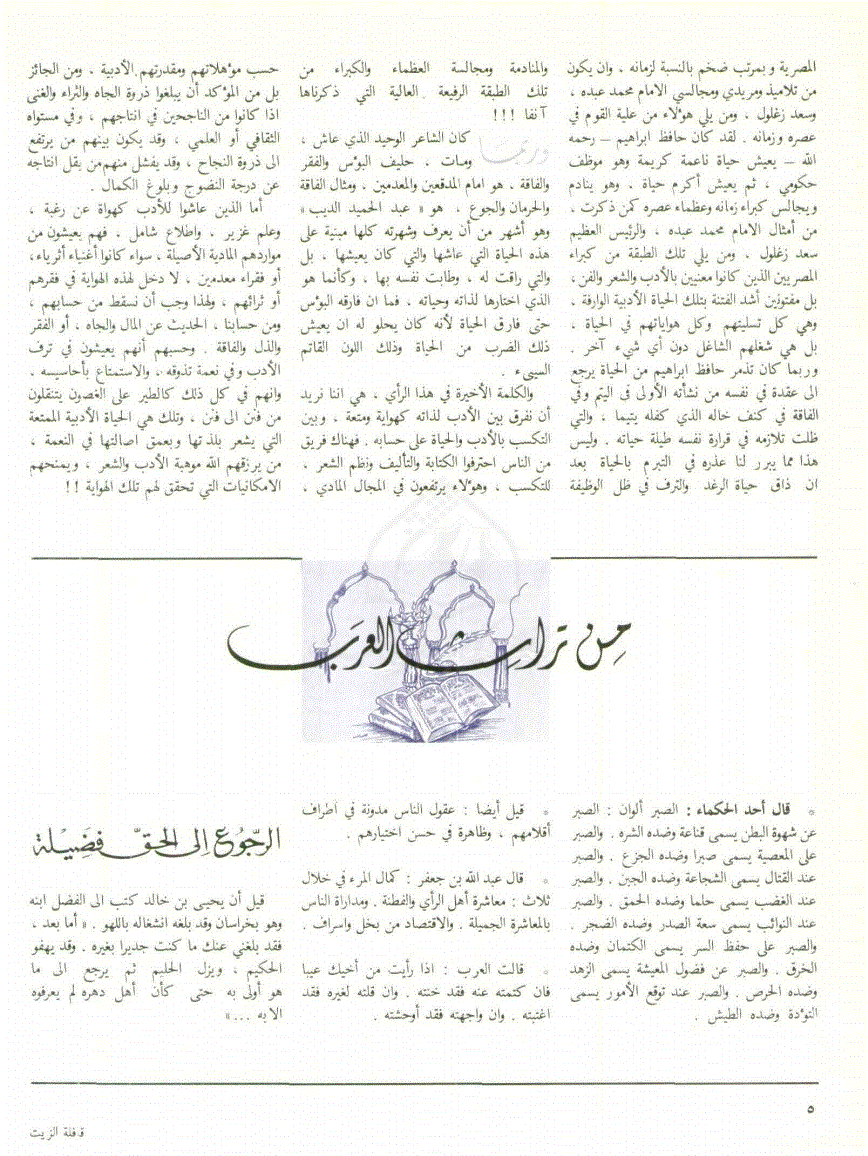 المصرية وبمرتب ضخم بالنسبة لزمانه ، وان يكون
من تلاميذ ومريدي ومجالسي الامام محمد عبده ،
وسعد زغلول ، ومن يلي هؤلاء من علية القوم في
عصره وزمانه . لقد كان حافظ ابراهيم – رحمه
الله – يعيش حياة ناعمة كريمة وهو موظف
حكومي ، ثم يعيش أكرم حياة ، وهو ينادم
ويجالس كبراء زمانه وعظماء عصره كمن ذكرت ،
من أمثال الامام محمد عبده ، والرئيس العظيم
سعد زغلول . ومن يلي تلك الطبقة من كبراء
المصريين الذين كانوا معنيين بالأدب والشعر والفن ،
بل مفتونين أشد الفتنة بتلك الحياة الأدبية الوارفة ،
وهي كل تسليتهم وكل هواياتهم في الحياة ،
بل هي شغلهم الشاغل دون أي شيء آخر .
وربما كان تذمر حافظ ابراهيم من الحياة يرجع
الى عقدة في نفسه من نشأته الأولى في اليتم وفي
الفاقة في كنف خاله الذي كفله يتيما ، والتي
ظلت تلازمه في قرارة نفسه طيلة حياته . وليس
هذا مما يبرر لنا عذره في التبرم بالحياة بعد
ان ذاق حياة الرغد والترف في ظل الوظيفة
والمنادمة ومجالسة العظماء والكبراء من
تلك الطبقة الرفيعة العالية التي ذكرناها
آنفا !!!
وربما كان الشاعر الوحيد الذي عاش ،
ومات ، حليف البؤس والفقر
والفاقة ، هو امام المدقعين والمعدمين ، ومثال الفاقة
والحرمان والجوع ، هو « عبد الحميد الديب »
وهو أشهر من أن يعرف وشهرته كلها مبنية على
هذه الحياة التي عاشها والتي كان يعيشها ، بل
والتي راقت له ، وطابت نفسه بها ، وكأنما هو
الذي اختارها لذاته وحياته ، فما ان فارقه البؤس
حتى فارق الحياة لأنه كان يحلو له ان يعيش
ذلك الضرب من الحياة وذلك اللون القاتم
السيىء .
والكلمة الأخيرة في هذا الرأي ، هي اننا نريد
أن نفرق بين الأدب لذاته كهواية ومتعة ، وبين
التكسب بالأدب والحياة على حسابه . فهناك فريق
من الناس احترفوا الكتابة والتأليف ونظم الشعر ،
للتكسب ، وهؤلاء يرتفعون في المجال المادي ،
حسب مؤهلاتهم ومقدرتهم الأدبية ، ومن الجائز
بل من المؤكد أن يبلغوا ذروة الجاه والثراء والغنى
اذا كانوا من الناجحين في انتاجهم ، وفي مستواه
الثقافي أو العلمي ، وقد يكون بينهم من يرتفع
الى ذروة النجاح ، وقد يفشل منهم من يقل انتاجه
عن درجة النضوج وبلوغ الكمال .
أما الذين عاشوا للأدب كهواة عن رغبة ،
وعلم غزير . واطلاع شامل . فهم يعيشون من
مواردهم المادية الأصيلة ، سواء كانوا أغنياء أثرياء،
أو فقراء معدمين ، لا دخل لهذه الهواية في فقرهم
أو ثرائهم ، ولهذا وجب أن نسقط من حسابهم ،
ومن حسابنا ، الحديث عن المال والجاه ، أو الفقر
والذل والفاقة . وحسبهم أنهم يعيشون في ترف
الأدب وفي نعمة تذوقه ، والاستمتاع بأحاسيسه ،
وانهم في كل ذلك كالطير على الغصون يتنقلون
من فنن الى فنن ، وتلك هي الحياة الأدبية الممتعة
التي يشعر بلذتها وبعمق اصالتها في النعمة ،
من يرزقهم الله موهبة الأدب والشعر ، ويمنحهم
الامكانيات التي تحقق لهم تلك الهواية !!
من تراث العرب
* قال أحد الحكماء : الصبر ألوان : الصبر
عن شهوة البطن يسمى قناعة وضده الشره . والصبر
على المعصية يسمى صبرا وضده الجزع . والصبر
عند القتال يسمى الشجاعة وضده الجبن . والصبر
عند الغضب يسمى حلما وضده الحمق . والصبر
عند النوائب يسمى سعة الصدر وضده الضجر .
والصبر على حفظ السر يسمى الكتمان وضده
الخرق . والصبر عن فضول المعيشة يسمى الزهد
وضده الحرص . والصبر عند توقع الأمور يسمى
التؤدة وضده الطيش .
* قيل أيضا : عقول الناس مدونة في أطراف
أقلامهم ، وظاهرة في حسن اختيارهم .
* قال عبد الله بن جعفر : كمال المرء في خلال
ثلاث : معاشرة أهل الرأي والفطنة . ومداراة الناس
بالمعاشرة الجميلة . والاقتصاد من بخل واسراف .
* قالت العرب : اذا رأيت من أخيك عيبا
فان كتمته عنه فقد خنته . وان قلته لغيره فقد
اغتبته . وان واجهته فقد أوحشته .
الرجوع الى الحق فضيلة
قيل أن يحيى بن خالد كتب الى الفضل ابنه
وهو بخراسان وقد بلغه انشغاله باللهو . « أما بعد ،
فقد بلغني عنك ما كنت جديرا بغيره . وقد يهفو
الحكيم ، ويزل الحليم ثم يرجع الى ما
هو أولى به حتى كأن أهل دهره لم يعرفوه
الا به ... »
٥
قافلة الزيت